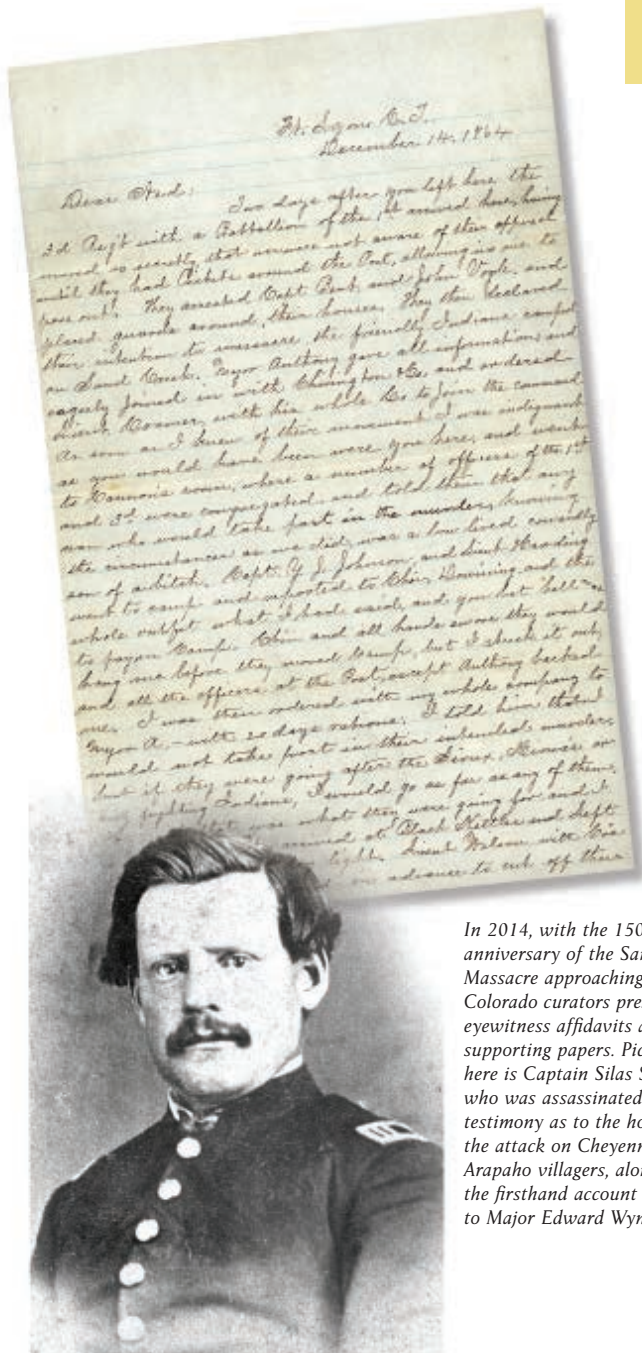 Ft. Lyon, C.T.
December 14, 1864
Dear Ned:
Two days after you left here the
3d Reg't with a Battallion of the 1st arrived here, having
moved so secretly that we were not aware of their approach
until they had Pickets around the Post, allowing no one to
pass out! They arrested Capt Bent and John Vogle and
placed guards around their houses. They then declared
their intention to massacre the friendly Indians camped
on Sand Creek. Major Anthony gave all information, and
eagerly Joined in with Chivington & Co. and ordered
Lieut Cramer, with his whole Co to Join the command
As soon as I knew of their movement I was indignant
as you would have been were you here, and went
to Cannon's room, where a number of officers of the 1st
and 3d were congregated and told them that any
man who would take part in the murders, knowing
the circumstances as we did, was a low lived cowardly
son of a bitch. Capt. Y. J. Johnson and Lieut Harding
went to camp and reported to Chiv, Downing and the
whole outfit what I had said, and you bet hell was
to pay in Camp. Chiv and all hands swore they would
hang me before they moved Camp, but I stuck it out,
and all the officers at the Post, except Anthony backed
me. I was then ordered with my whole company to
Major A— with 20 days rations. I told him that I
would not take part in their intended murder,
but if they were going after the Sioux, Kiowa's or
any fighting Indians, I would go as far as any of them.
that was what they were going for, and I
arrived at Black Kettles and Left
light. Lieut Wilson with Co's
in advance to cut off their
In 2014, with the 150
anniversary of the Sa
Massacre approaching
Colorado curators pre
eyewitness affidavits a
supporting papers. Pic
here is Captain Silas S
who was assassinated
testimony as to the ho
the attack on Cheyenn
Arapaho villagers, alo
the firsthand account
to Major Edward Wyn